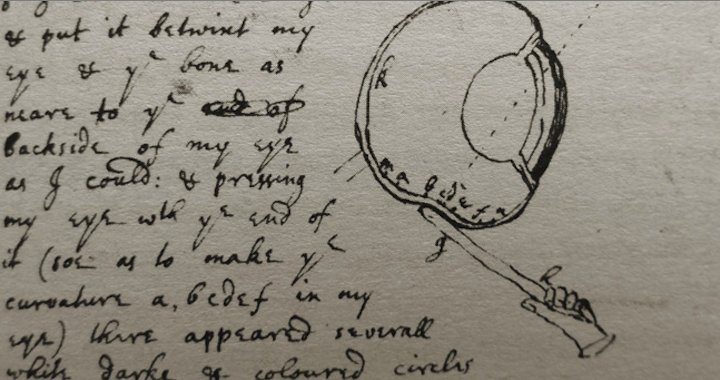 & put it betwixt my
eye & yᵉ bone as
neare to yᵉ end of
backside of my eye
as I could: & pressing
my eye wth yᵉ end of
it (soe as to make yᵉ
curvature a, bcdef in my
eye) there appeared severall
white darke & coloured circles
k
m a b c d e f n
g
h